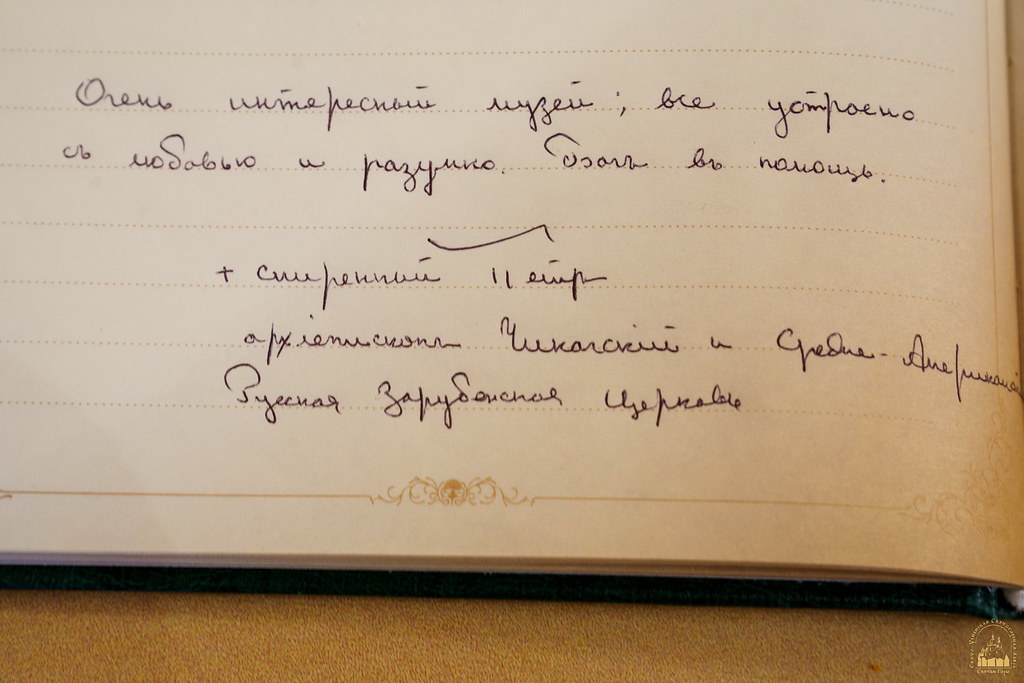 Очень интересный музей; все устроено
съ любовью и разумно. Богъ въ помощь.
+ смиренный Петр
архіепископъ Чикагскій и Средне-Американскій
Русская Зарубежная Церковь